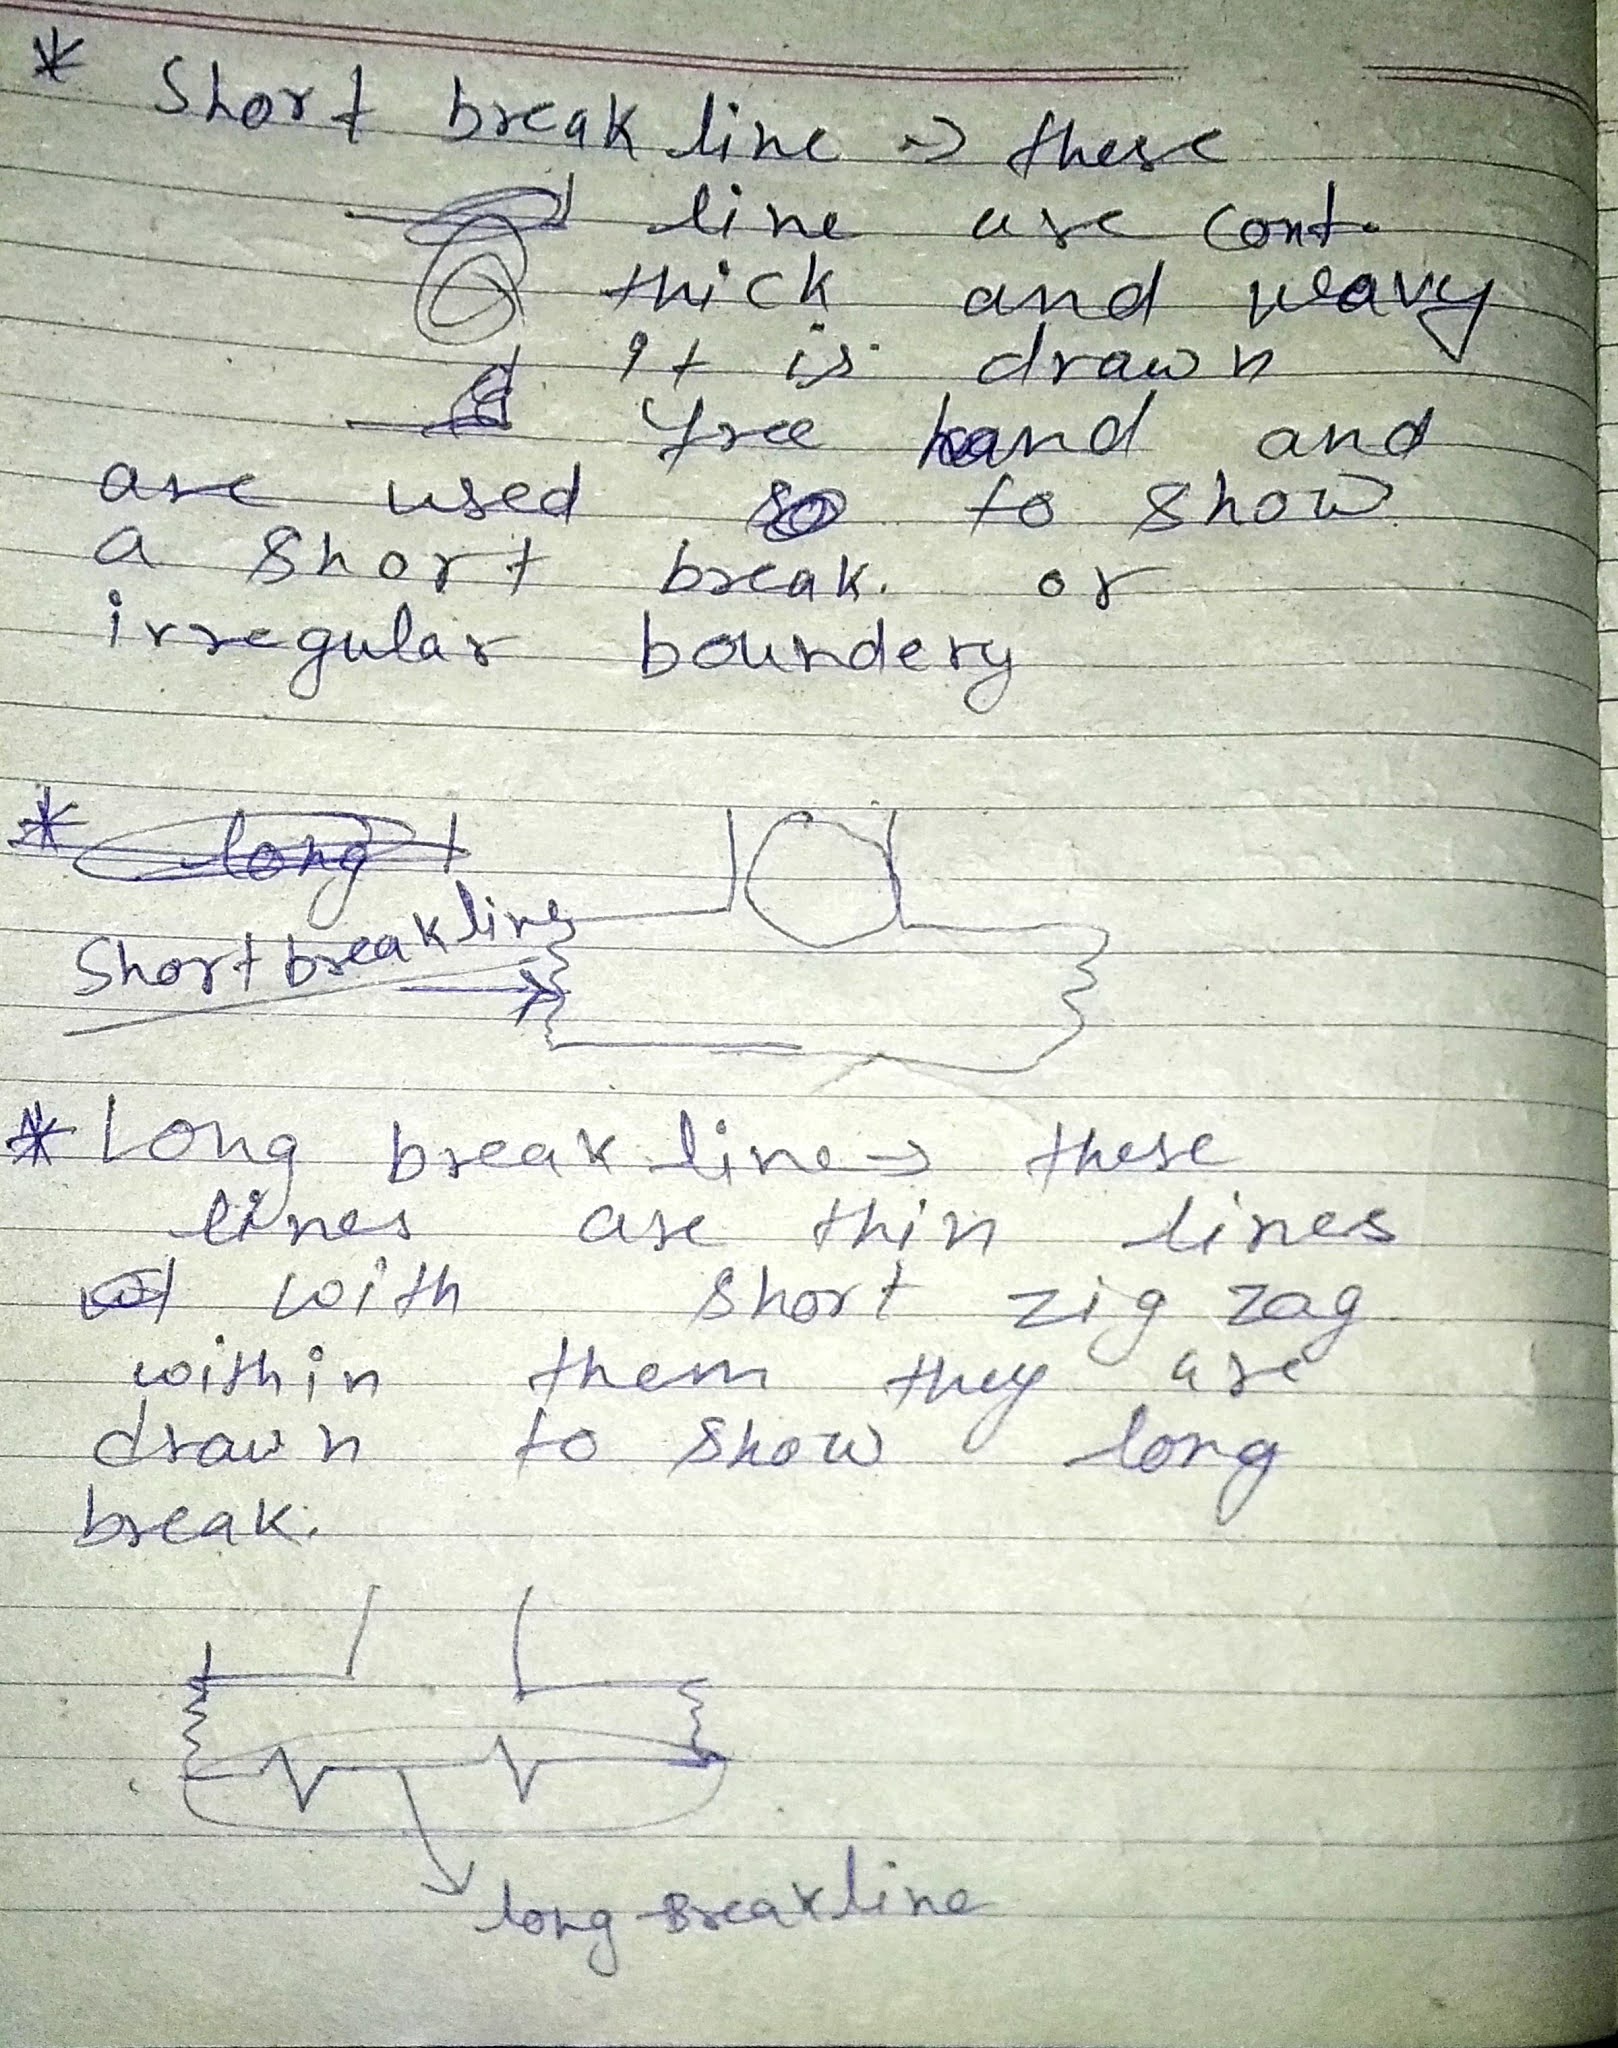 * Short break line → these
line are cont.
thick and weavy
it is drawn
free hand and
are used to show
a short break. or
irregular boundery
* long
Short break line
* Long break line → these
lines are thin lines
with short zig zag
within them they are
drawn to show long
break.
long Break line